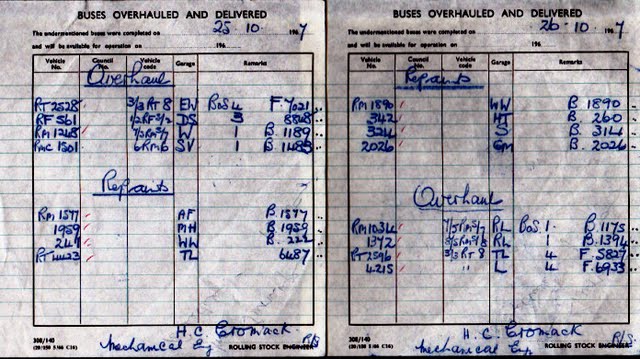 BUSES OVERHAULED AND DELIVERED
25 · 10 1967
The undermentioned buses were completed on
and will be available for operation on 196
Vehicle No. Council No. Vehicle code Garage Remarks
Overhaul
RT 2528 3/3 RT 8 EW BoS 4 F. 7021
RF 561 1/2 RF 5/2 DS 3 8848
RM 1248 W 1 B. 1189
RMC 1501 6 RM 6 SV 1 B. 1485
Repaints
RM 1577 AF B. 1577
1959 MH B. 1959
WW
RT 4423 TL 6487
H. C. Cromack
308/140
Mechanical Eng
ROLLING STOCK ENGINEER
BUSES OVERHAULED AND DELIVERED
26 · 10 · 1967
The undermentioned buses were completed on
and will be available for operation on 196
Vehicle No. Council No. Vehicle code Garage Remarks
Repaints
RM 1890 WW B. 1890
342 HT B. 260
3214 S B. 314
2026 GM B. 2026
Overhaul
RM 1034 RL BoS. 1 B. 1175
1372 RL 1 B. 1394
RT 2596 3/3 RT 8 TL 4 F. 5827
4215 " L 4 F. 6933
H. C. Cromack
308/140
Mechanical Eng
ROLLING STOCK ENGINEER